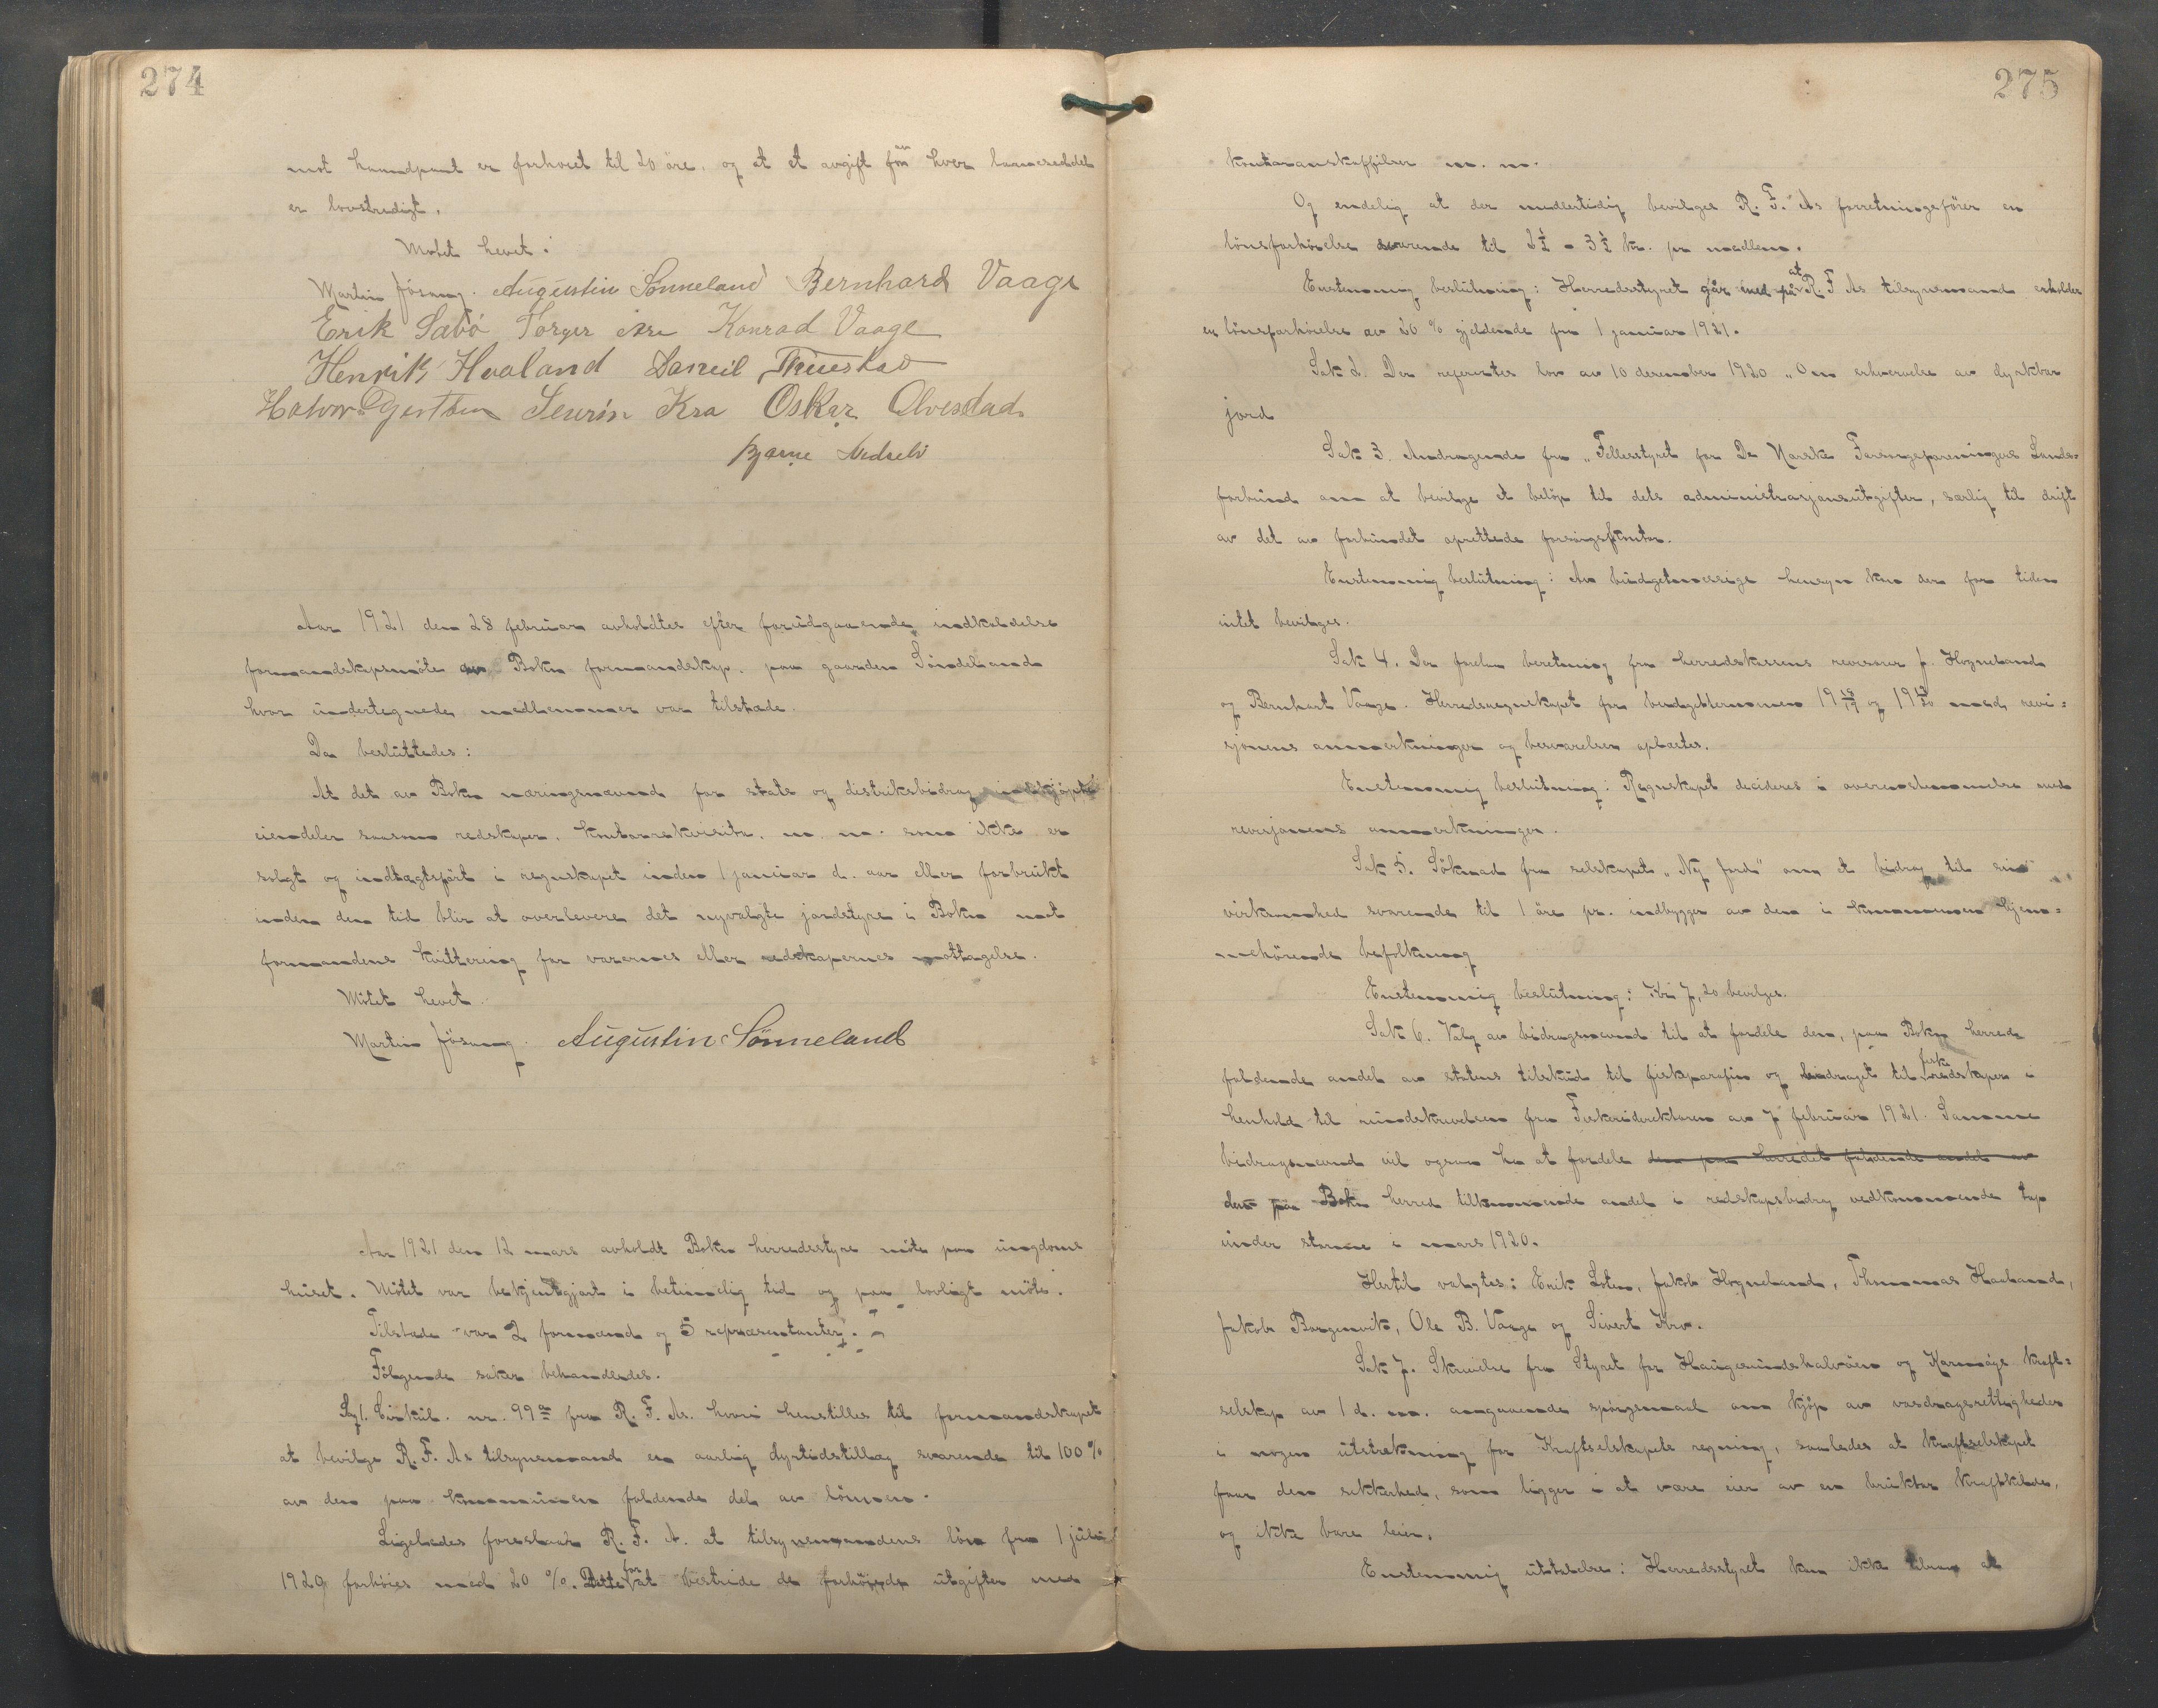 274
mot haandpant er forhøiet til 20 øre, og at et avgift av hver laaneseddel
er lovstredigt.
Møtet hevet.
Martin Jøsang. Augustin Sønneland Bernhard Vaage
Erik Sæbø Torger Kro Konrad Vaage
Henrik Haaland Daneil
Halvor Gjertsen Seurin Kro Oskar Alvestad
Bjarne
Aar 1921 den 28 februar avholdtes efter forutgaaende indkaldelse
formandskapsmøte av Bokn formandskap paa gaarden Søndeland
hvor undertegnede medlemmer var tilstæde.
Da besluttedes:
At det av Bokn næringsnævnd for stats og distriksbidrag indkjøpte
eiendeler saasom redskaper, kontorrekvisita, m. m. som ikke er
solgt og indtægtsført i regnskapet inden 1 januar d. aar eller forbrukt
inden den tid blir at overlevere det nyvalgte jordstyre i Bokn mot
formandens kvittering for varernes eller redskapernes mottagelse.
Møtet hevet.
Martin Jøsang. Augustin Sønneland
Aar 1921 den 12 mars avholdt Bokn herredsstyre møte paa ungdoms
huset. Møtet var bekjentgjort i betimelig tid og paa lovligt møte.
Tilstede var 2 formænd og 5 repræsentanter.
Følgende saker behandledes.
Sak 1. Cirkul. nr. 99 a fra R. F. As. hvori henstilles til formandskapet
at bevilge R. F. As tilsynsmand en aarlig dyrtidstillæg svarende til 100 %
av den paa kommunen faldende del av lønnen.
Ligeledes foreslaar R. F. A. at tilsynsmandens løn fra 1 juli
1920 forhøies med 20 %. Dette for at bestride de forhøiede utgifter med
275
kontoranskaffelser m. m.
Og endelig at der midlertidig bevilges R. F. As forretningsfører en
lønsforhøielse svarende til 2½ - 3½ kr. pr medlem.
Enstemmig beslutning: Herredsstyret går med på at R. F As tilsynsmand erholder
en lønsforhøielse av 20 % gjeldende fra 1 januar 1921.
Sak 2. Der refereertes lov av 10 december 1920 „Om erhvervelse av dyrkbar
jord
Sak 3. Andragende fra „Fellesstyret for De Norske Forsorgsforeningers Lands=
forbund om at bevilge et beløp til dets administrasjonsutgifter, særlig til drift
av det av forbundet oprettede forsorgskontor.
Enstemmig beslutning: Av budgetmessige hensyn kan der for tiden
intet bevilges.
Sak 4. Der forelaa beretning fra herredskassens revisorer J. Hogneland
og Bernhart Vaage. Herredsregnskapet for budgetterminen 19 18/19 og 19 19/20 med revi=
sjonens anmerkninger og besvarelser oplæstes.
Enstemmig beslutning: Regnskapet decideres i overensstemmelse med
revisjonens anmerkninger.
Sak 5. Søknad fra selskapet „Ny Jord" om et bidrag til sin
virksomhed svarende til 1 øre pr. indbygger av den i kommunen hjem=
mehørende befolkning
Enstemmig beslutning: Kr 7,20 bevilges.
Sak 6. Valg av bidragsnævnd til at fordele den, paa Bokn herrede
faldende andel av statens tilskud til fiskeparafin og bidraget til fiske redskaper i
henhold til rundskrivelsen fra Fiskeridirektøren av 7 februar 1921. Samme
bidragsnævnd vil ogsaa ha at fordele den paa herredet faldende andel av
den på Bokn herred tilkommende andel i redskapsbidrag vedkommende tap
under storme i mars 1920.
Hertil valgtes: Erik Loten, Jakob Hogneland, Thommas Haaland,
Jakob Borgenvik, Ole B. Vaage og Sivert Kro.
Sak 7. Skrivelse fra Styret for Haugesundshalvøen og Karmøys kraft=
selskap av 1 d. m. angaaende spørgsmaal om kjøp av vasdragsrettigheder
i nogen utstrekning for Kraftselskapets regning, saaledes at kraftselskapet
faar den sikkerhed, som ligger i at være eier av en brukbar kraftkilde,
og ikke bare leier.
Enstemmig uttalelse: Herredsstyret kan ikke tilraa at